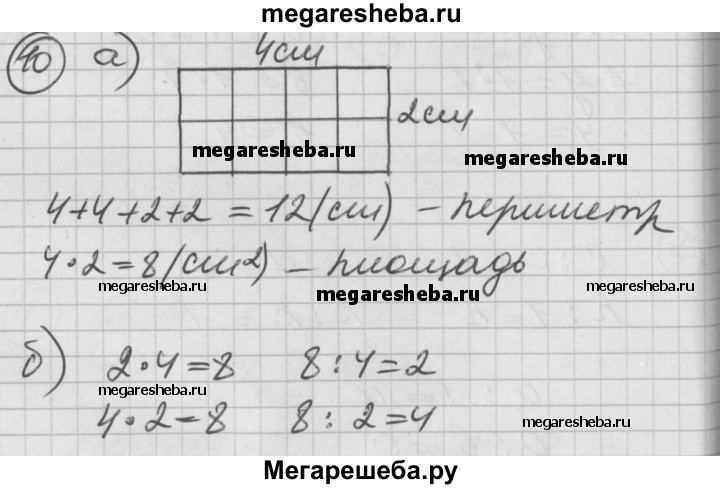 megaresheba.ru
10 а)
4см
2см
megaresheba.ru
megaresheba.ru
4+4+2+2 = 12(см) – периметр
4·2=8(см2) – площадь
megaresheba.ru
megaresheba.ru
megaresheba.ru
б) 2·4=8 8:4=2
megaresheba.ru
megaresheba.ru
4·2=8 8:2=4
Мегарешеба.ру